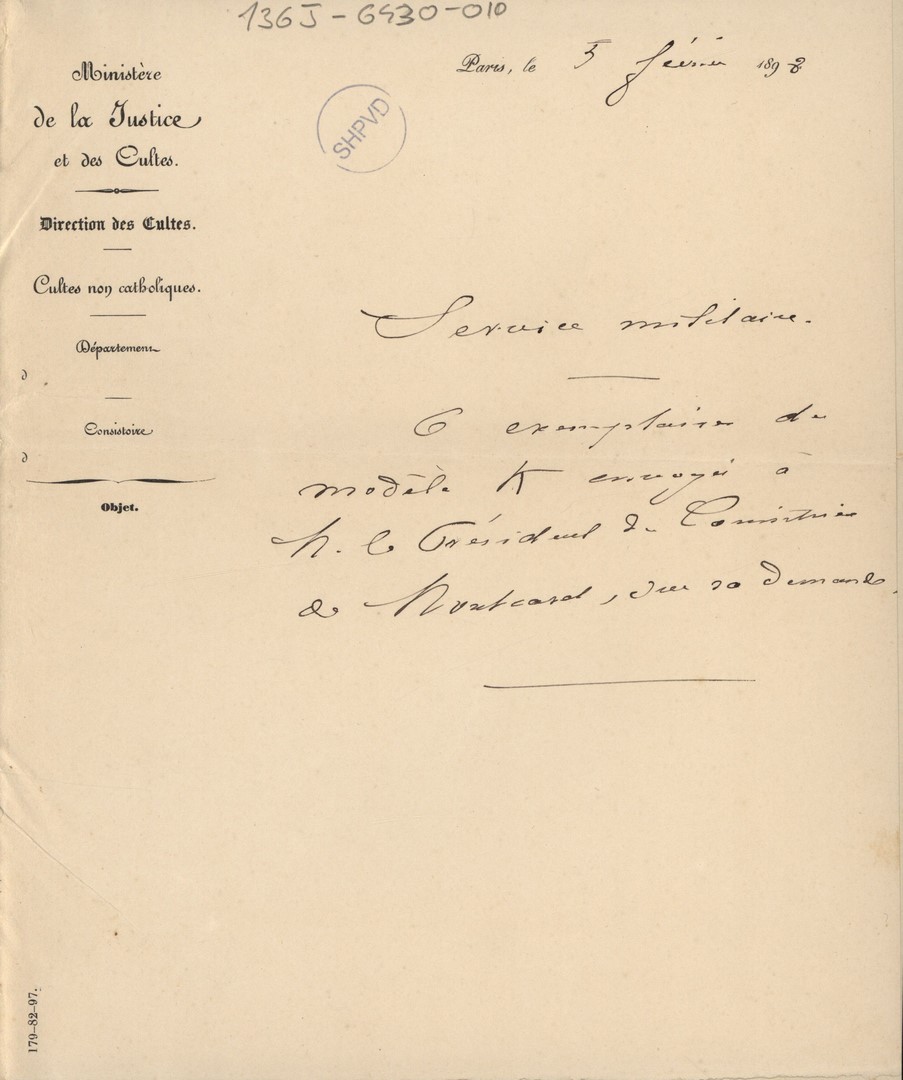 136J-6430-010
Paris, le 5 février 1898
Ministère
de la Justice
et des Cultes.
SHPVD
Direction des Cultes.
Cultes non catholiques.
Département
d
Consistoire
d
Objet.
Service militaire.
6 exemplaires du
modèle K envoyés à
M. le Président du Consistoire
de Montcaret, sur sa demande.
179-82-97.